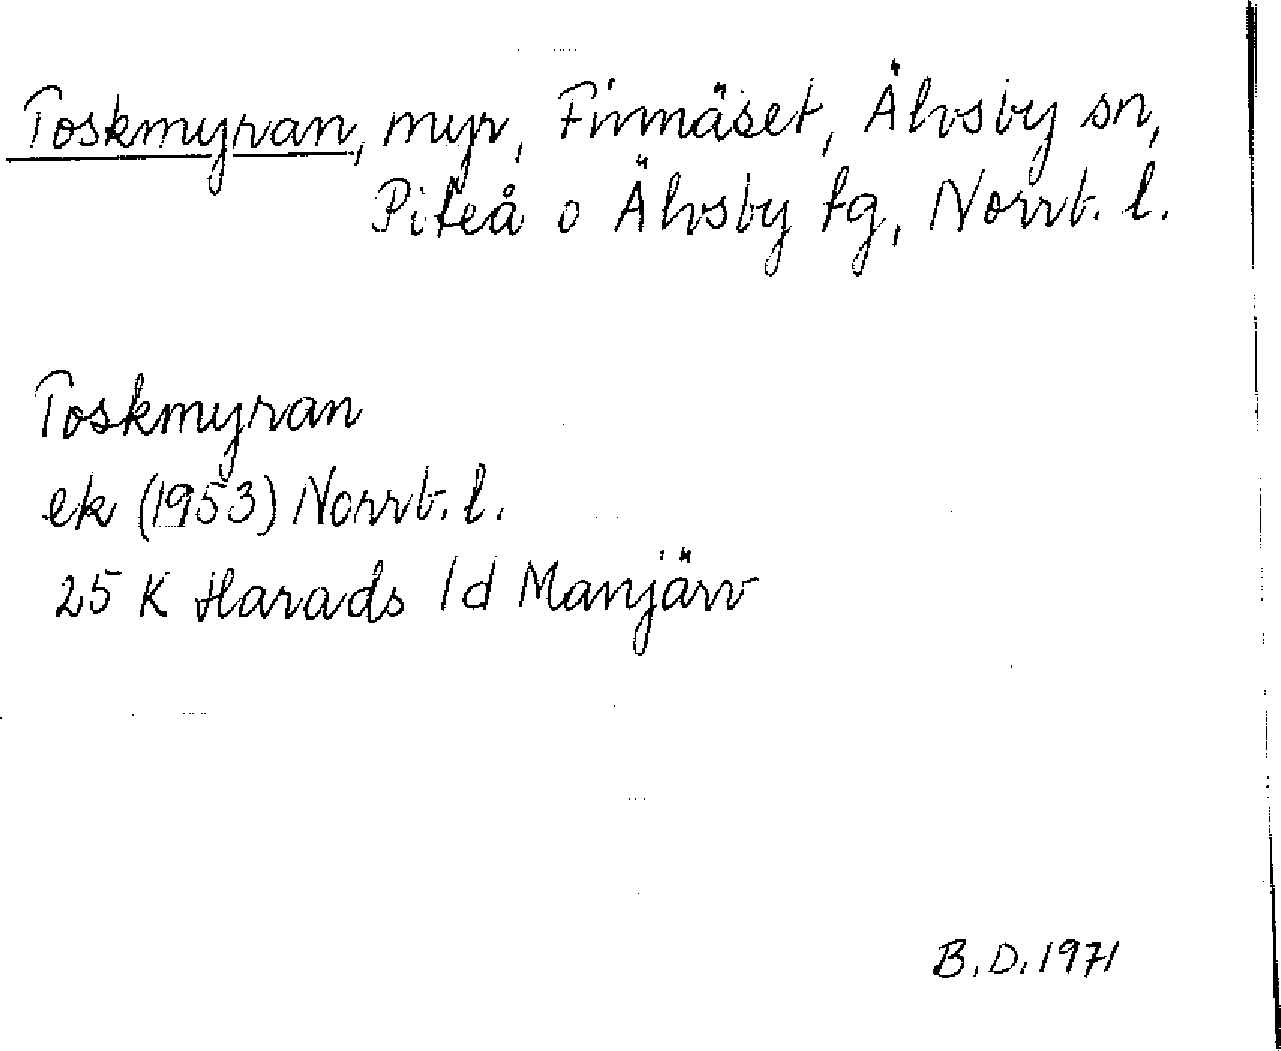 Toskmyran, myr, Finnäset, Älvsby sn,
Piteå o Älvsby tg, Norrb. l.
Toskmyran
ek (1953) Norrb. l.
25 K Harads 1d Manjärv
B.D. 1971